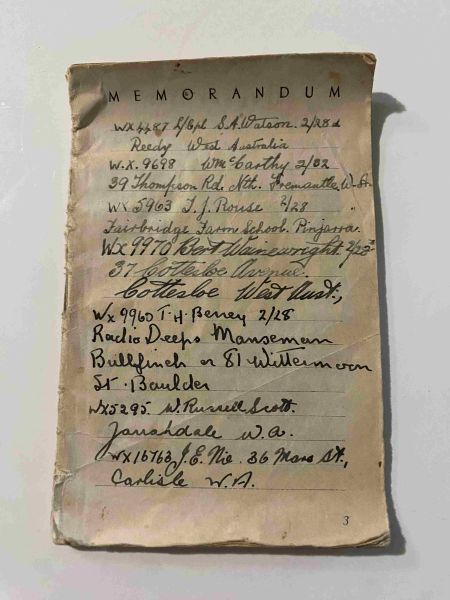 MEMORANDUM
WX4487 L/Cpl S.A. Watson. 2/28
Reedy West Australia
W.X. 9698 Wm McCarthy 2/32
39 Thompson Rd. Nth. Fremantle W.A.
WX 5963 T.J. Rouse 2/28
Fairbridge Farm School. Pinjarra.
WX 9970 Bert Wainewright 2/28
37 Cottesloe Avenue.
Cottesloe West Aust.,
WX 9960 T.H. Beney 2/28
Radio Deeps Manseman
Bullfinch or 81 Wittermoon
St. Boulder
WX5295. W. Russell Scott.
Jarrahdale W.A.
WX16763 J.E. Nie. 36 Mars St.,
Carlisle W.A.
3